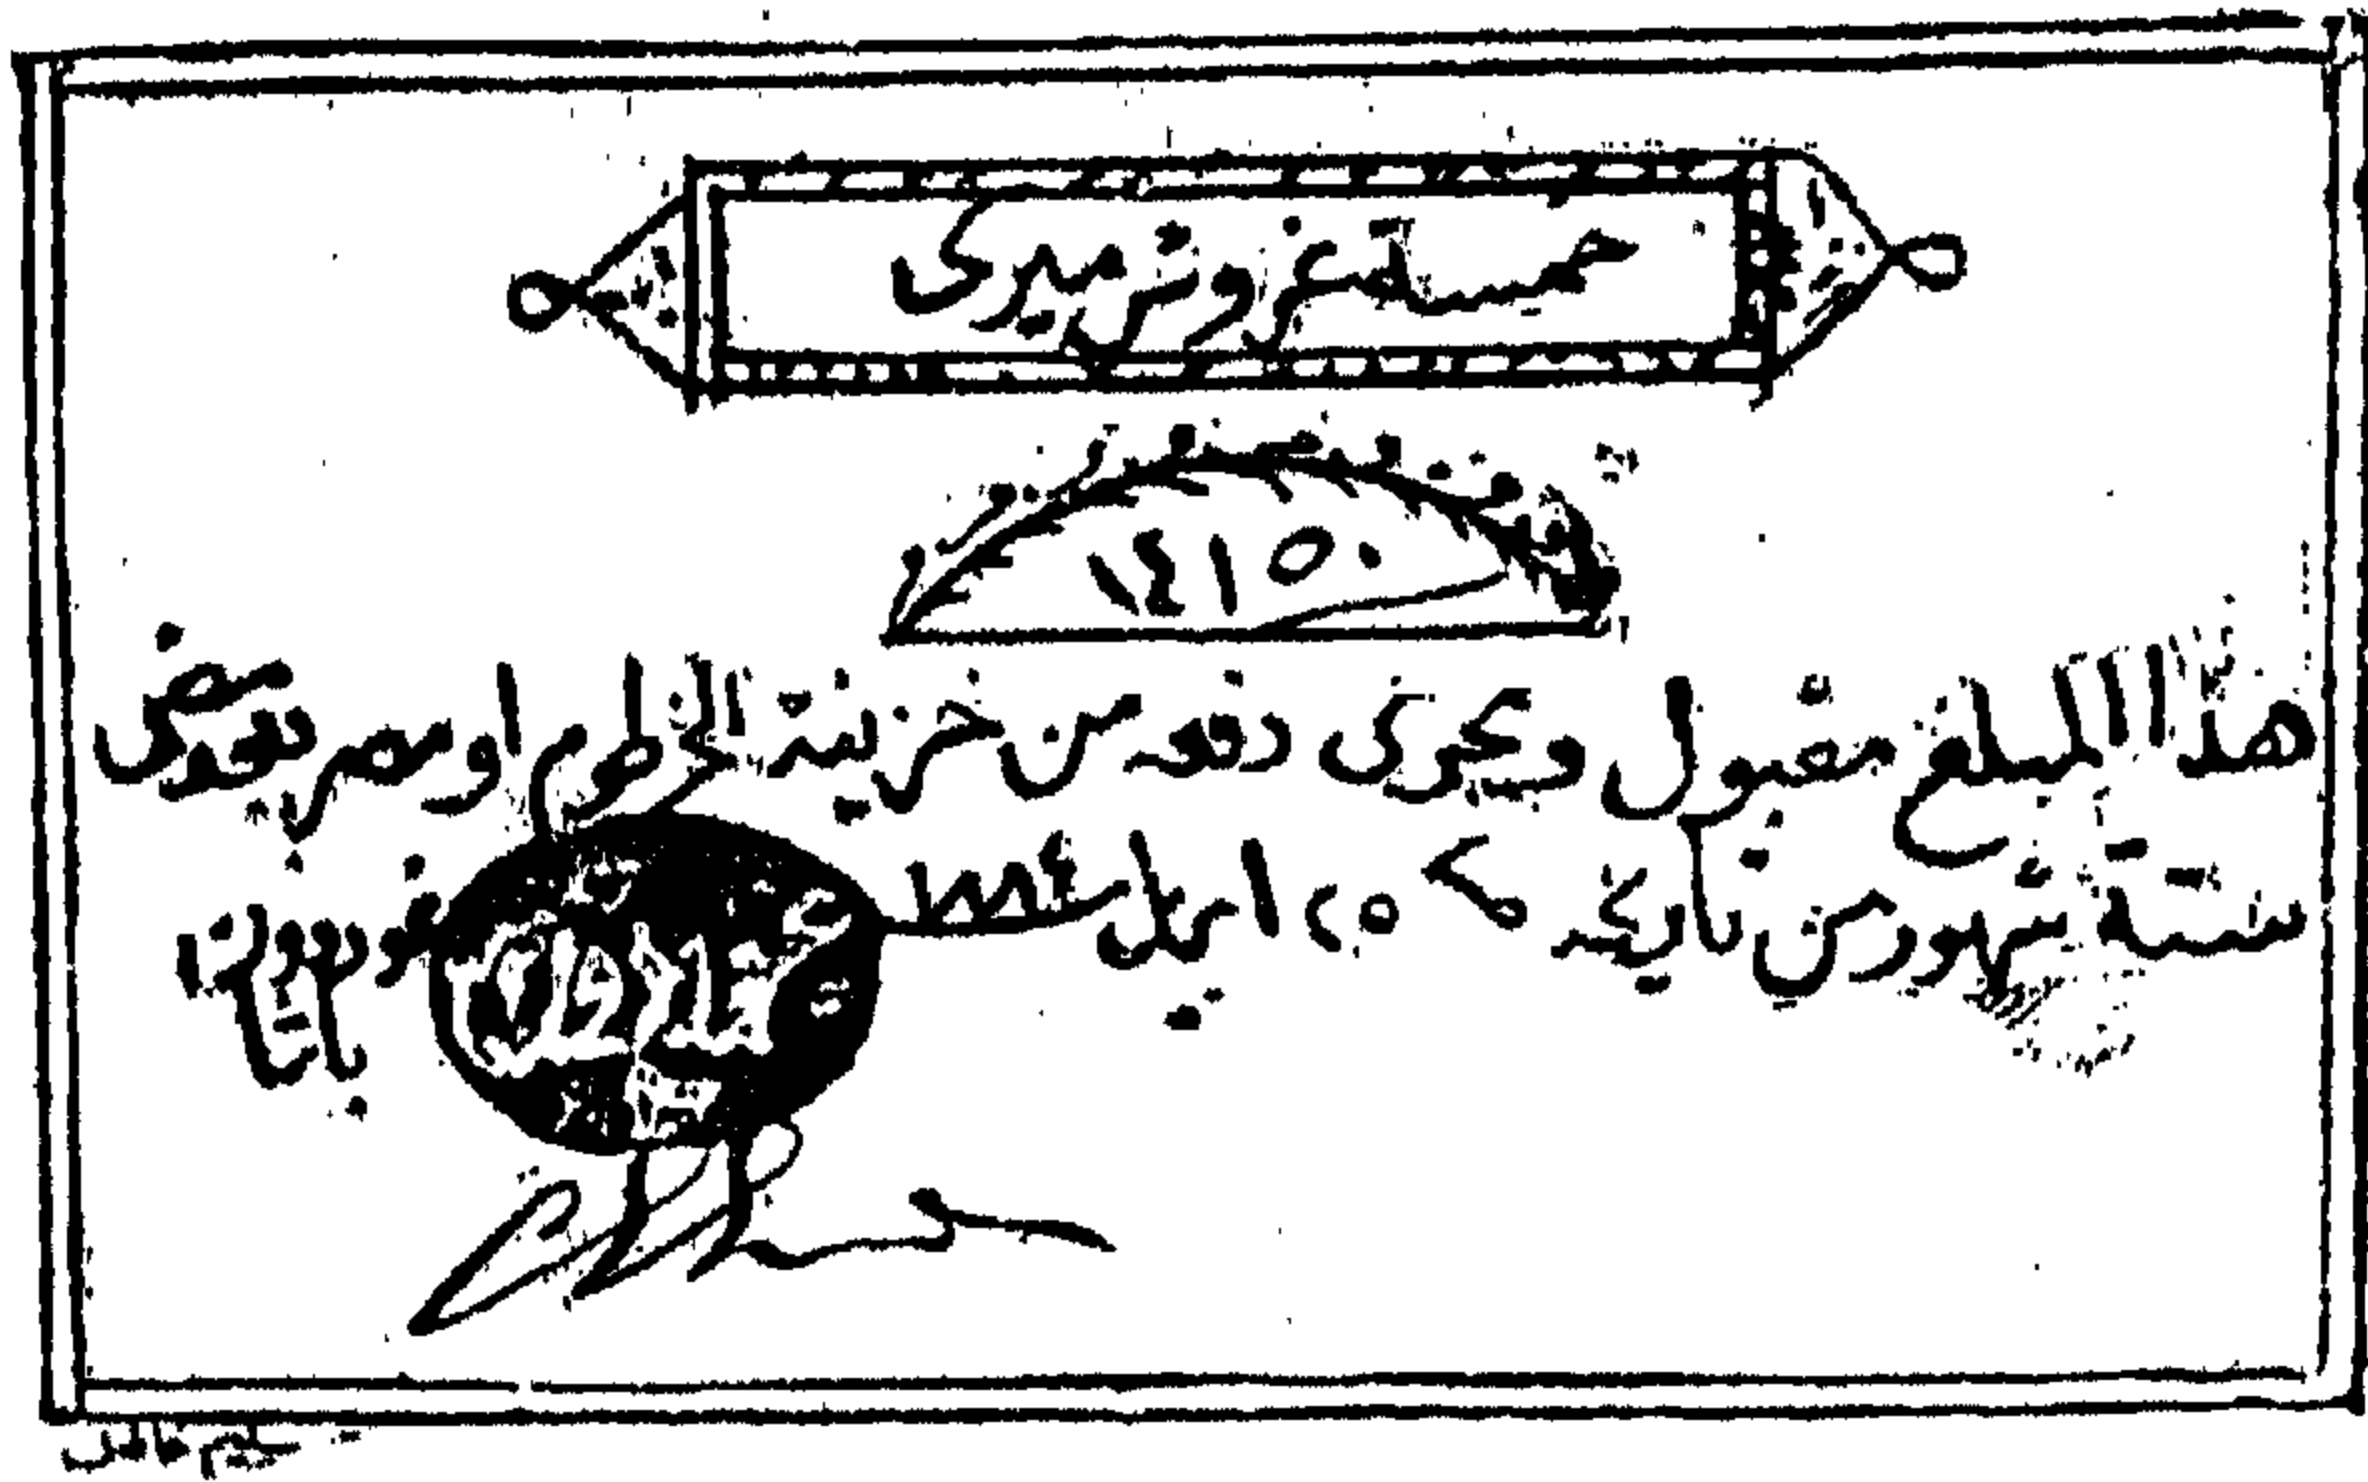 خمسة غروش ميرى
١٤١٥٠
هذا المبلغ مقبول ويجرى دفعه من خزينة الخرطوم او مصر بعد مضى
ستة شهور من تاريخه ٢٥ ابريل سنة ١٨٨٤ غوردون باشا